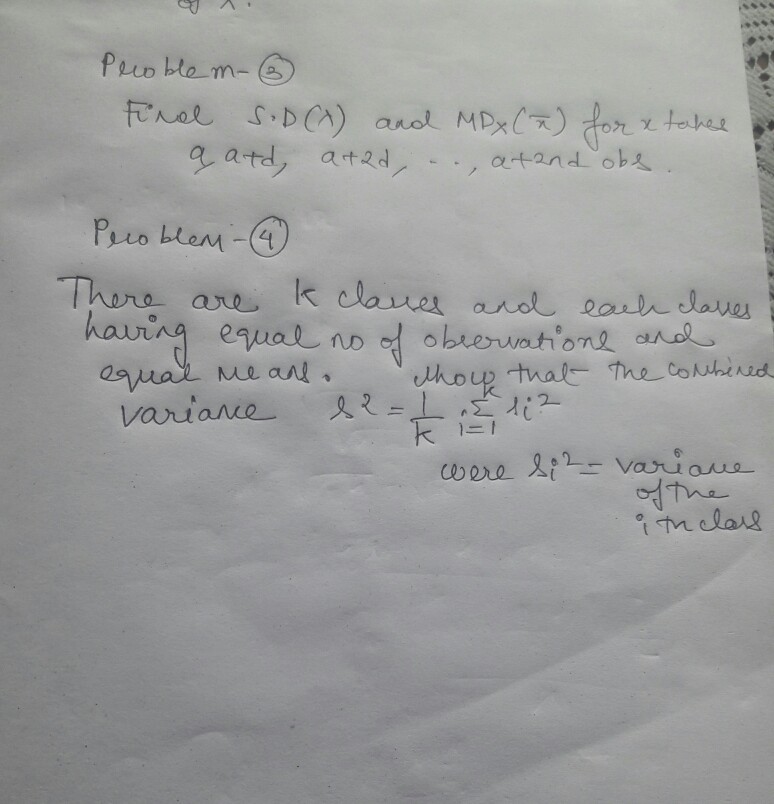 of x.
Problem-③
Find S.D(x) and MDx(x̄) for x takes
a, a+d, a+2d, ..., a+2nd obs.
Problem-④
There are k classes and each classes
having equal no of observations and
equal means. show that the combined
variance s² = 1/k Σ_{i=1}^{k} si²
were si² = variance
of the
i th class